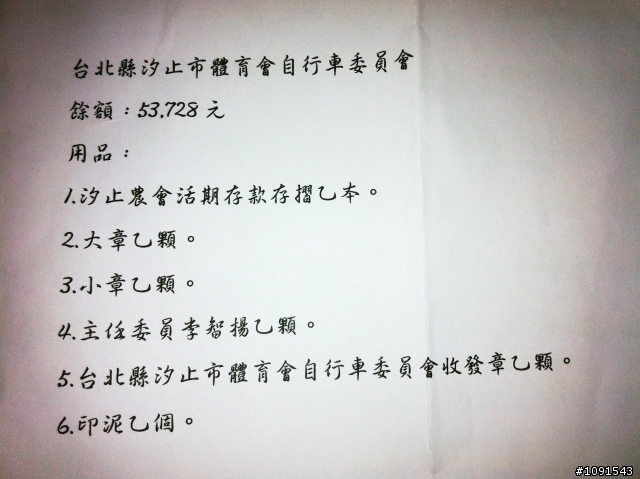 台北縣汐止市體育會自行車委員會
餘額：53,728 元
用品：
1.汐止農會活期存款存摺乙本。
2.大章乙顆。
3.小章乙顆。
4.主任委員李智揚乙顆。
5.台北縣汐止市體育會自行車委員會收發章乙顆。
6.印泥乙個。
#1091543